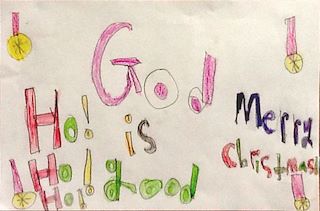 God
is
good
Ho!
Ho!
Ho!
Merry
Christmas!